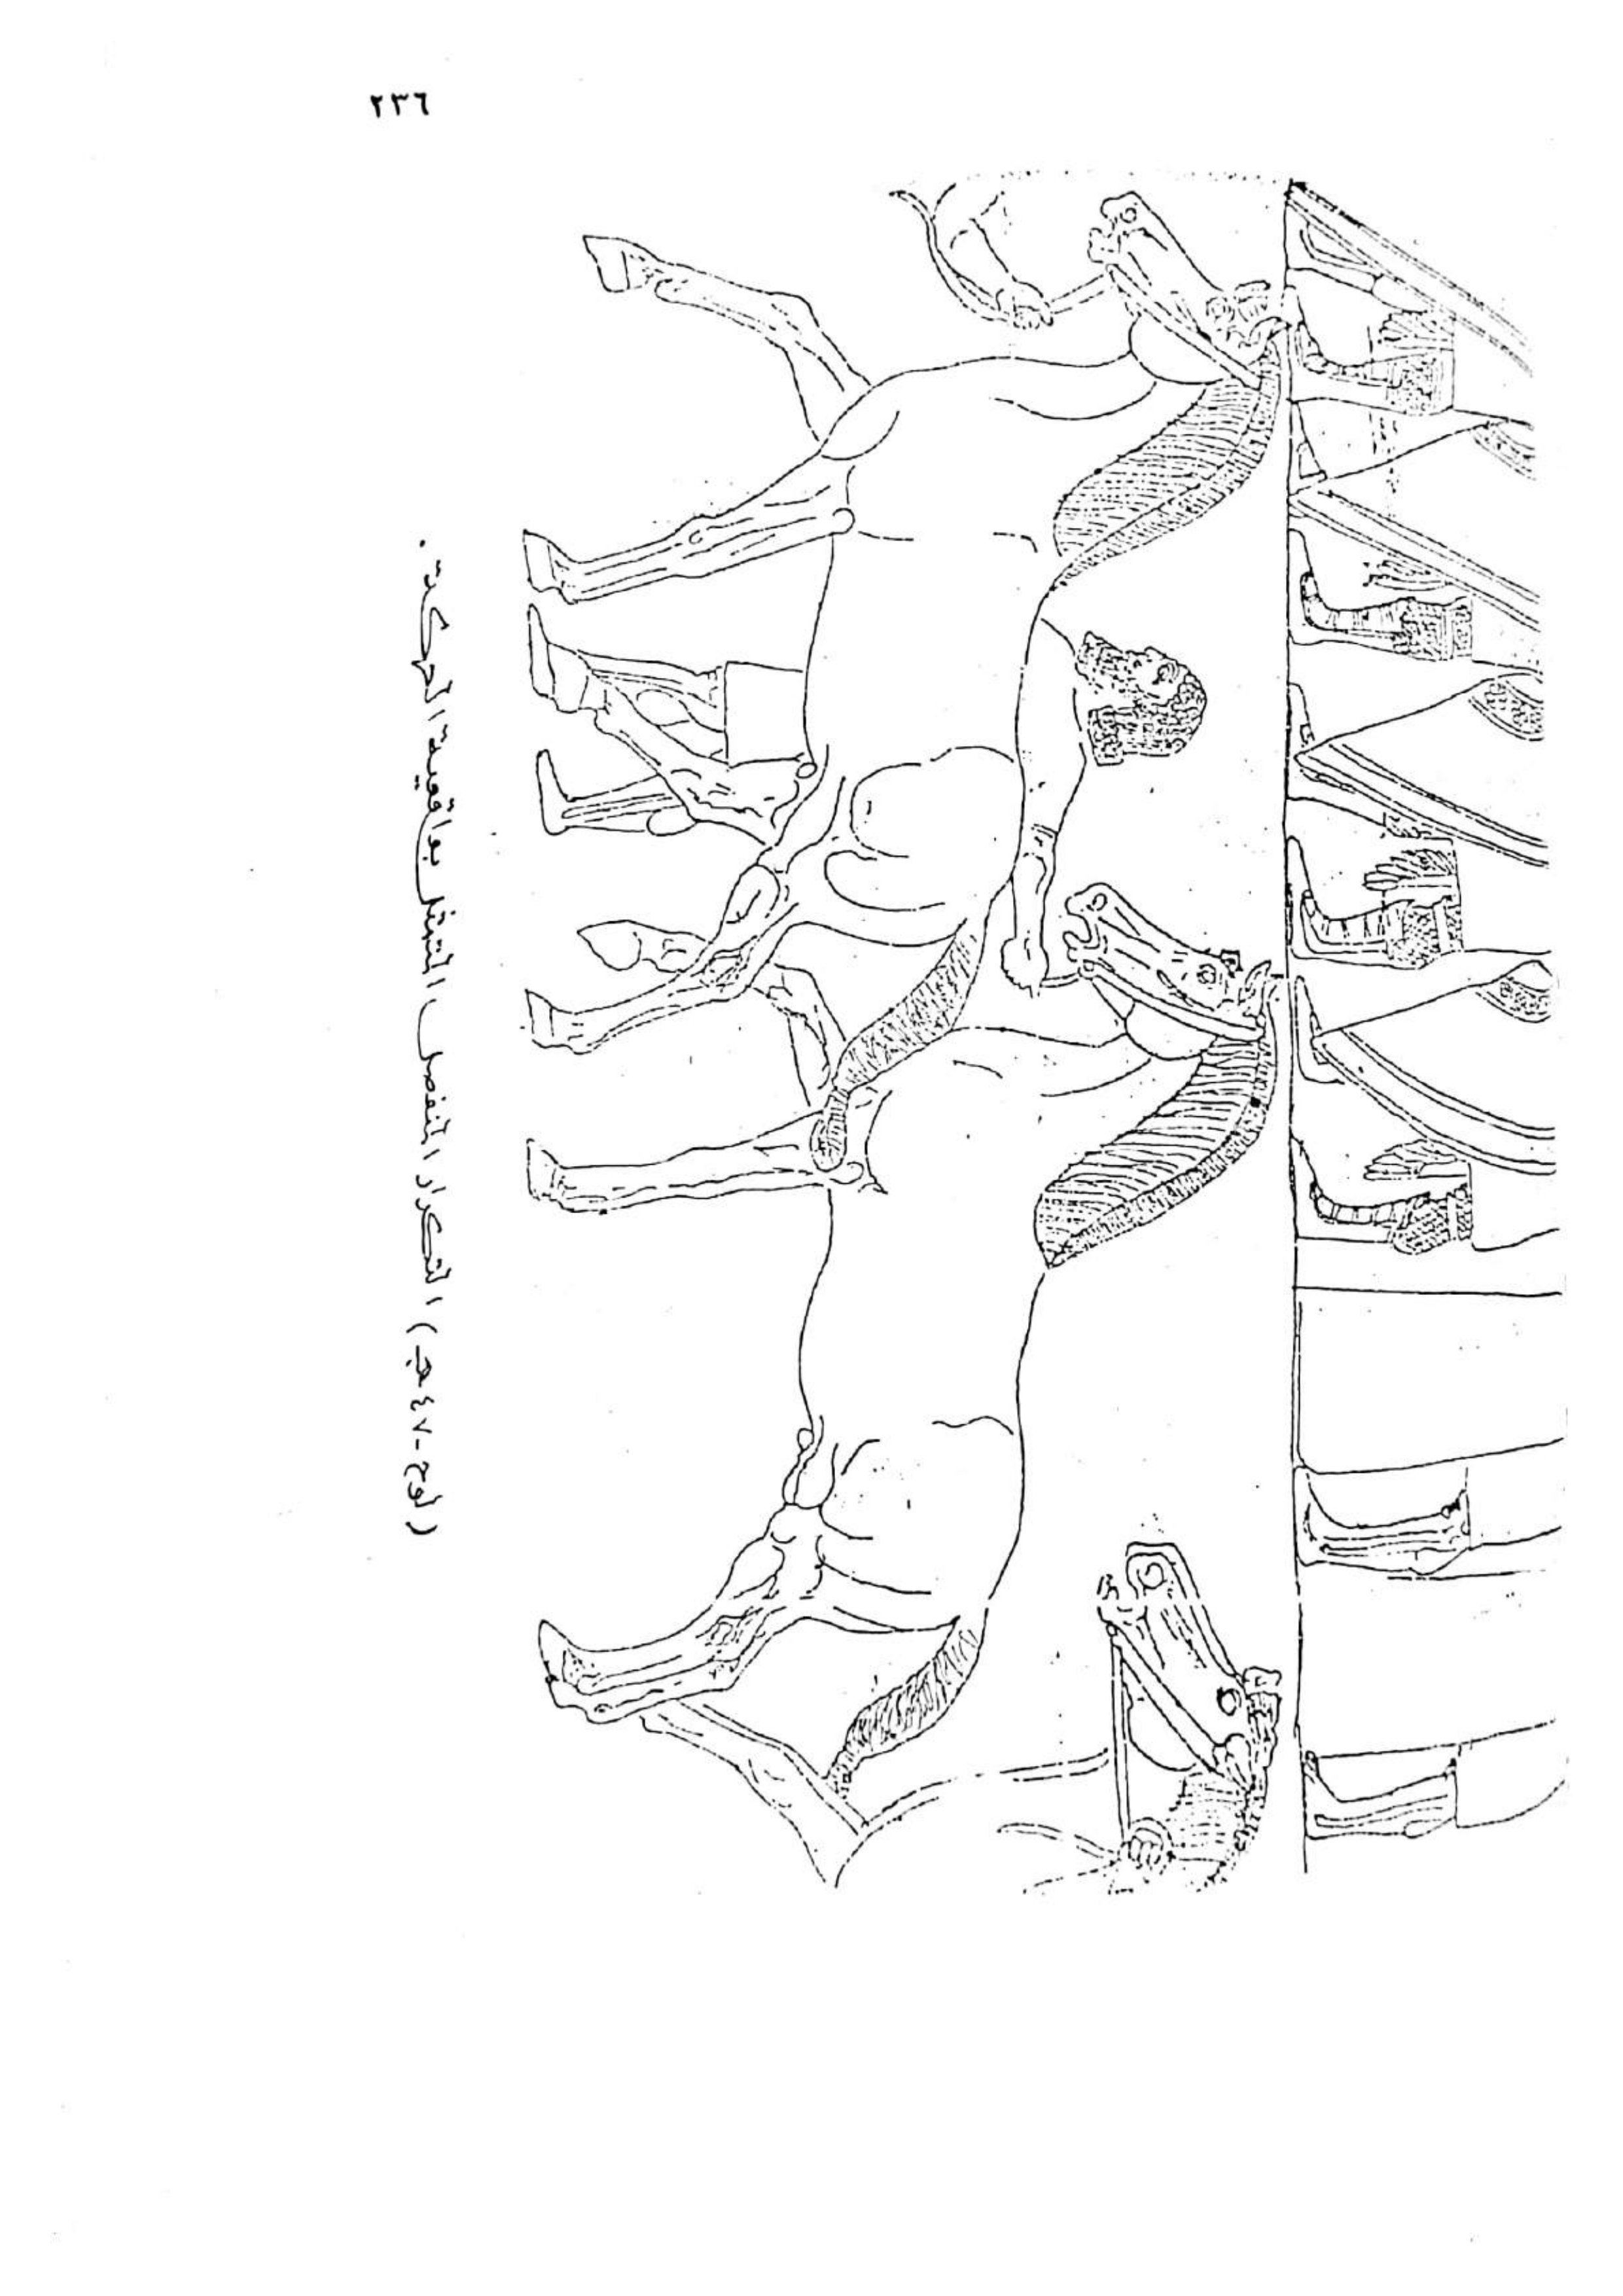 ٢٣٦
(لوح-٤٧ ج) التكرار المتصل المتمثل بواقعية الحركة.